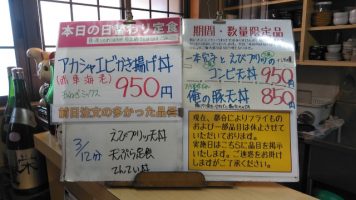 本日の日替わり定食
アカシャエビかき揚げ丼
950円
前日注文の多かった品名
3/12分
えびプリッ天丼
天ぷら定食
てんてい丼
期間・数量限定品
一本穴子とえびプリッの
コンビ天丼 950円
俺の豚天丼 850円
現在、都合によりフライもの
および一部品目は休止させて
いただいております。
実施日はこちらに品目を掲示
いたします。ご迷惑をお掛け
しますがご了承ください。